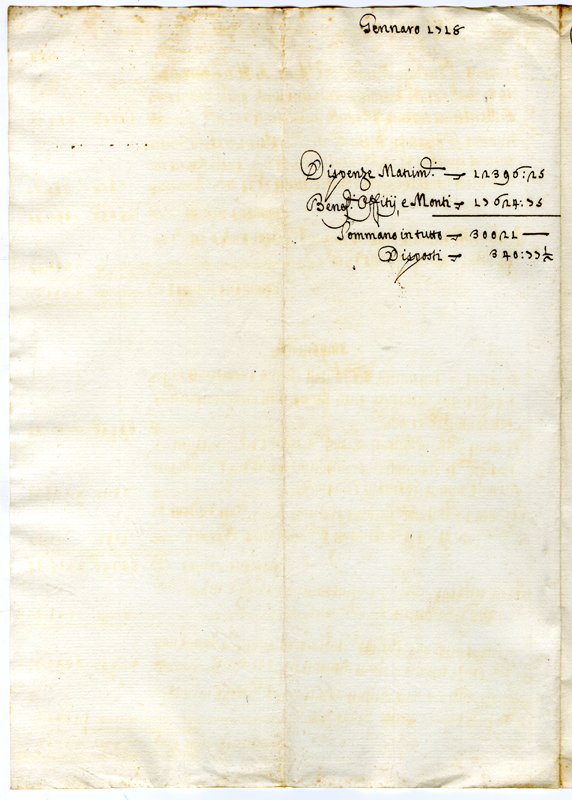 Gennaro 1718
Dispenze Matrim: — 12396:25
Benef. Offitij, e Monti — 17624:75
Sommano in tutto — 30021 —
Disposti — 340:77½